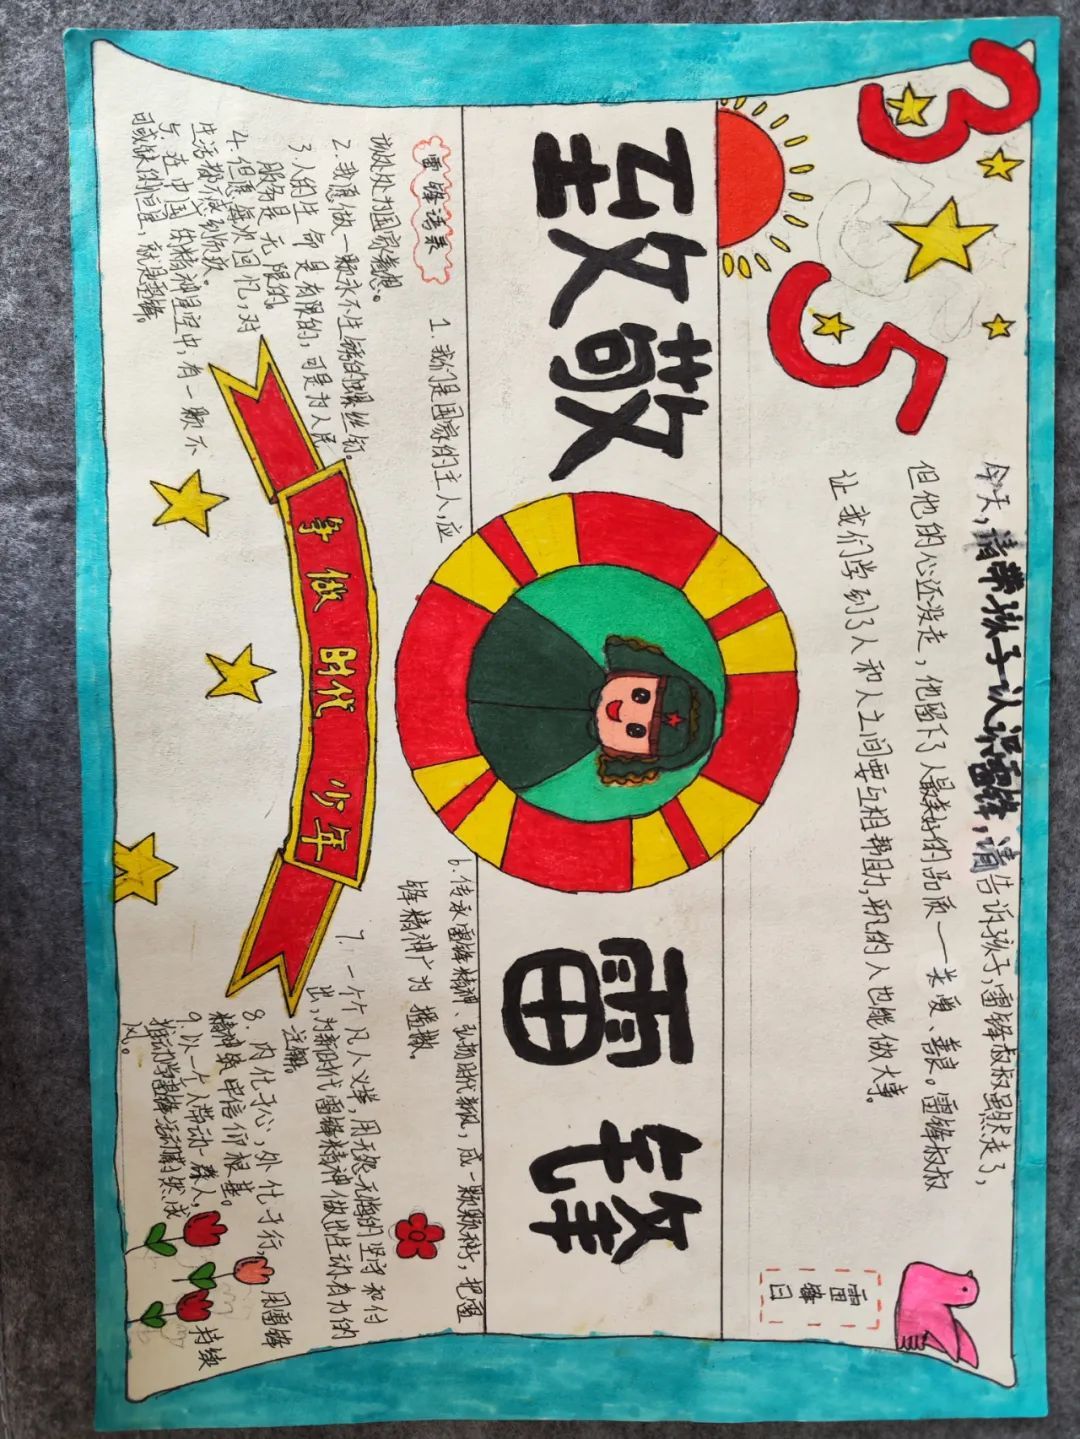 3
5
今天,请带孩子认识雷锋,请告诉孩子,雷锋叔叔虽然走了,
但他的心还没走,他留下了人最美好的品质——关爱、善良。雷锋叔叔
让我们学到了人和人之间要互相帮助,平凡的人也能做大事。
雷锋日
致敬
雷锋
雷锋语录
1.我们是国家的主人,应
该处处为国家着想。
2.我愿做一颗永不生锈的螺丝钉。
3.人的生命是有限的,可是为人民
服务是无限的。
4.但愿每次回忆,对
生活都不感到负疚。
5.在中国的精神星空中,有一颗不
可或缺的恒星,就是雷锋。
争做时代少年
6.传承雷锋精神、弘扬时代新风,成一颗颗种子,把雷
锋精神广为播撒。
7.一个个凡人义举,用无怨无悔的坚守和付
出,为新时代雷锋精神做出生动有力的
注解。
8.内化于心,外化于行,用雷锋
精神筑牢信仰根基。
9.以一个人带动一群人, 持续
推动学雷锋活动蔚然成
风。